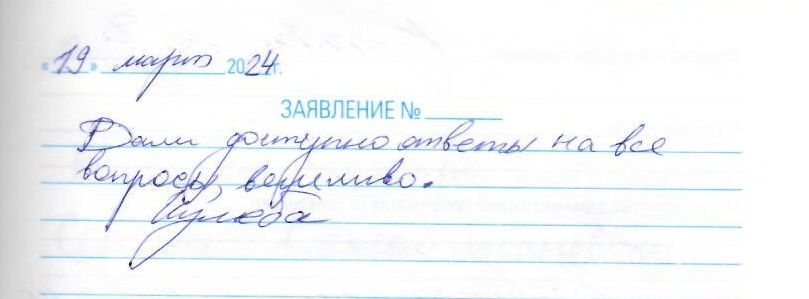 «19» марта 2024 г.
ЗАЯВЛЕНИЕ №
Дали доступно ответы на все
вопросы, вежливо.
Кулеба